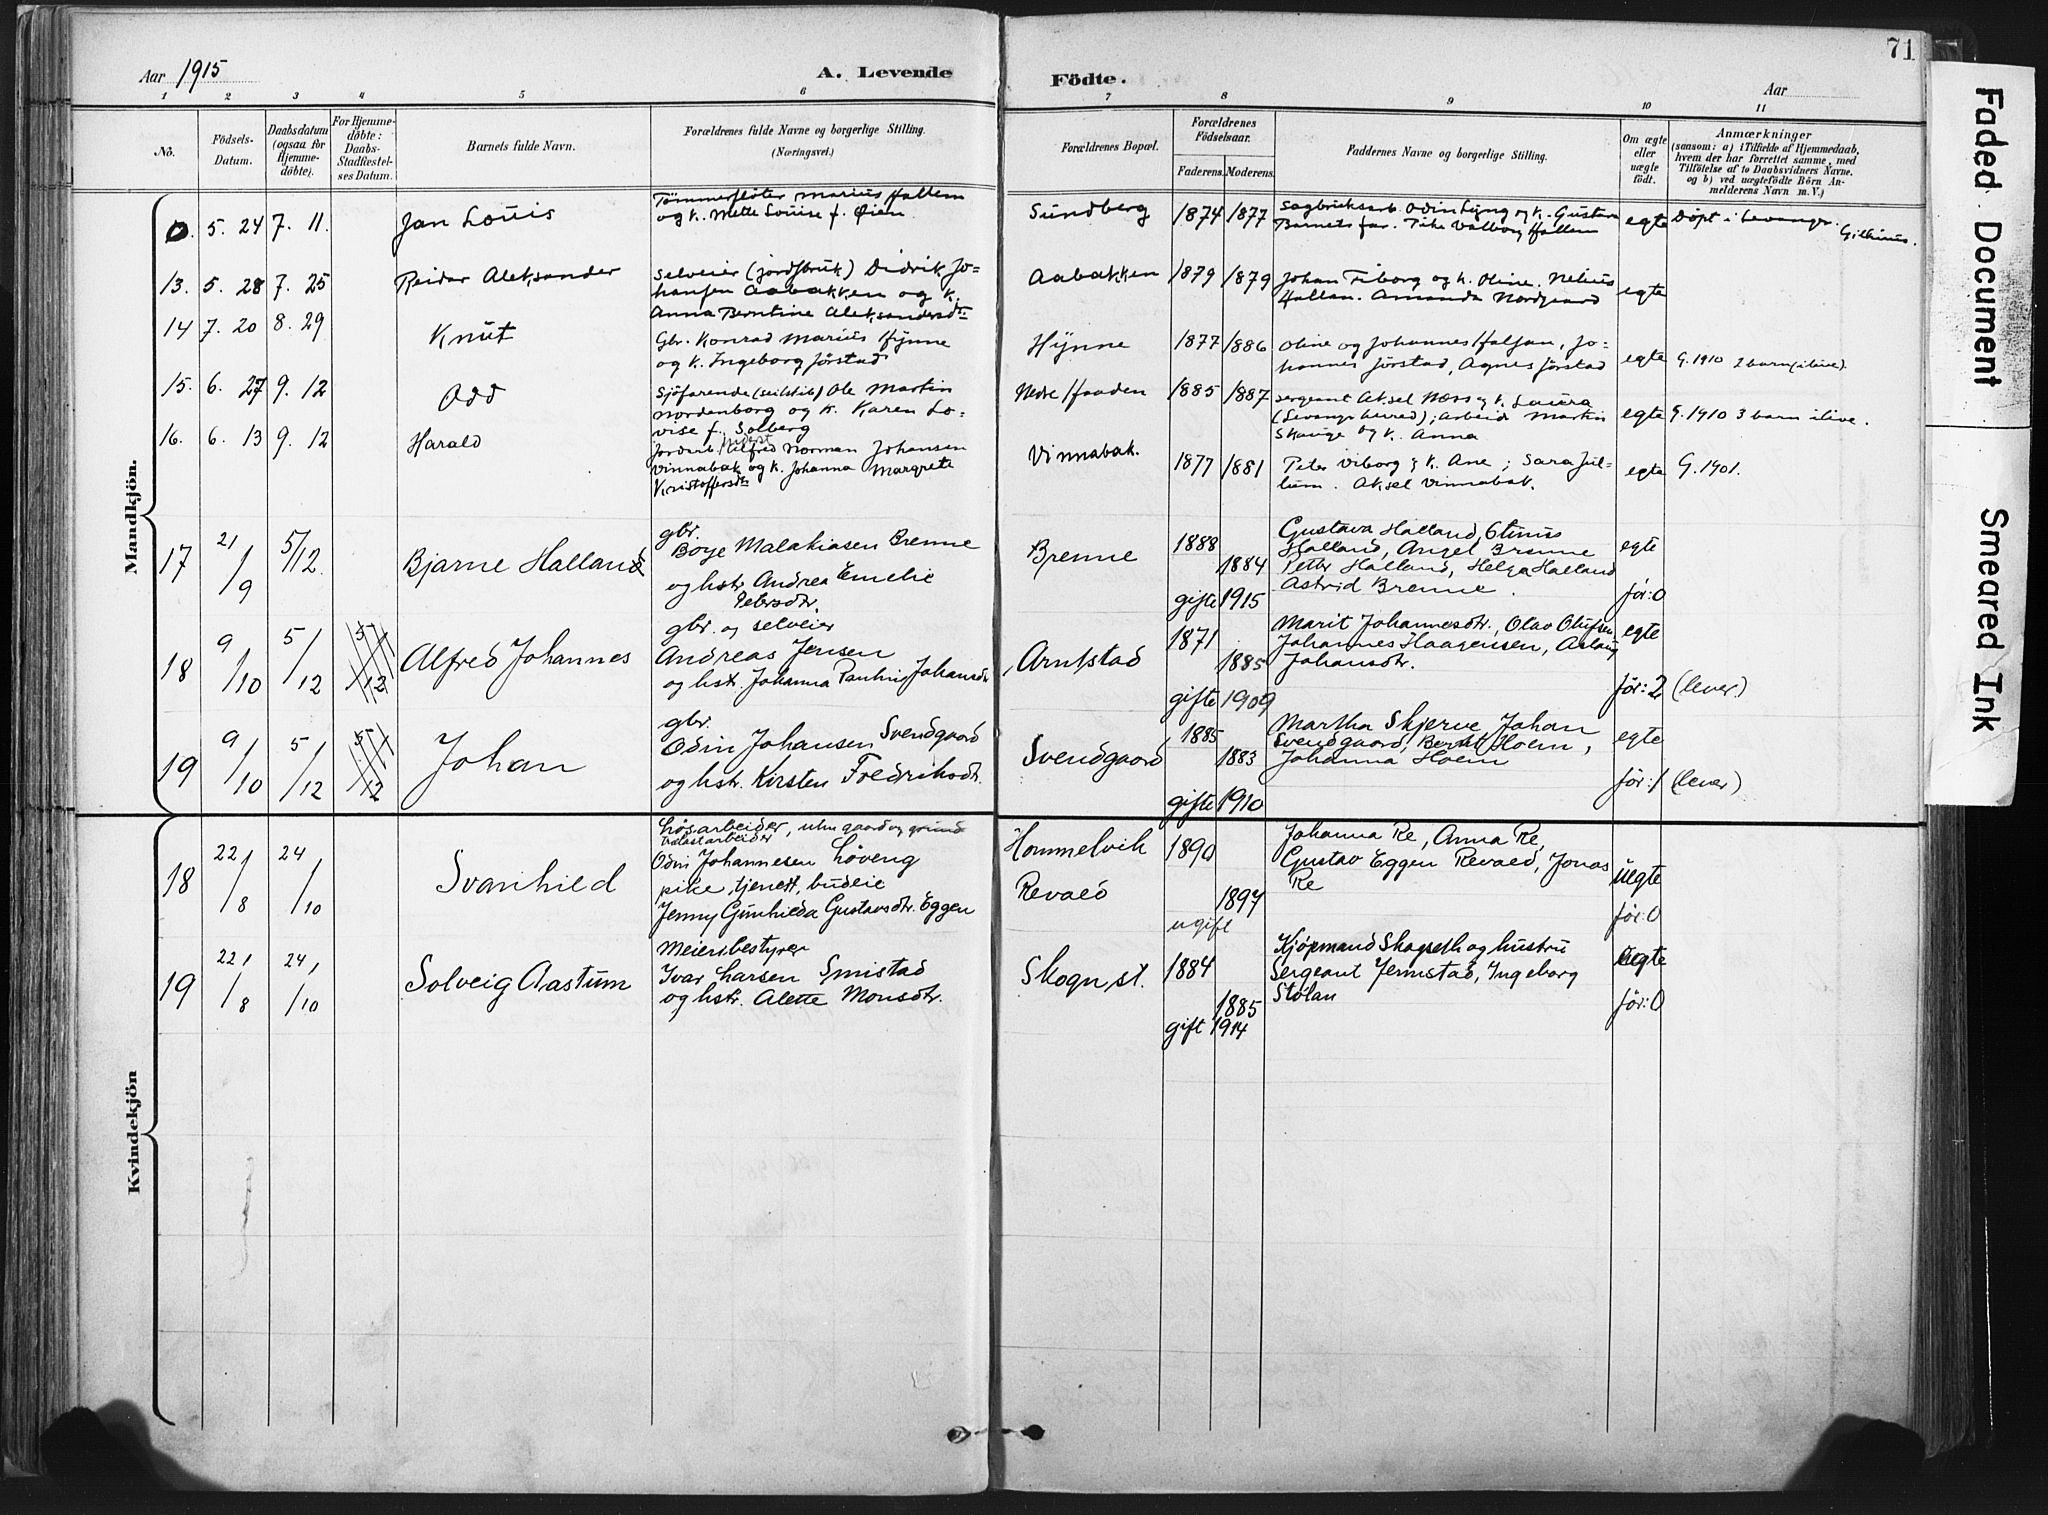 Aar 1915
A. Levende
Födte.
Aar
71
1 2 3 4 5 6 7 8 9 10 11
No.
Födsels-
Datum.
Daabsdatum
(ogsaa for
Hjemme-
döbte).
For Hjemme-
döbte:
Daabs-
Stadfæstel-
ses Datum.
Barnets fulde Navn.
Forældrenes fulde Navne og borgerlige Stilling.
(Næringsvei.)
Forældrenes Bopæl.
Forældrenes
Födselsaar.
Faderens. Moderens.
Faddernes Navne og borgerlige Stilling.
Om ægte
eller
uægte
födt.
Anmærkninger
(saasom: a) i Tilfælde af Hjemmedaab,
hvem der har forrettet samme, med
Tilföielse af to Daabsvidners Navne.
og b) ved uægtefödte Börn An-
melderens Navn m. V.)
Mandkjön.
5. 24 7. 11.
Jan Louis
Tömmerfløter Marius Hallem
og k. Mette Louise f. Øien
Sundberg
1874 1877
Sagbruksarb. Odin Lyng og k. Gustava
Barnets far. Tike Valborg Hallem
egte
Døpt i Levanger.
13. 5. 28 7. 25
Reidar Aleksander
Selveier (jordbruk) Didrik Jo-
hansen Aabakken og k.
Anna Berntine Aleksandersdtr
Aabakken
1879 1879
Johan Fiborg og k. Oline. Nelius
Hallan. Amanda Nordgaard
egte
14 7. 20 8. 29
Knut
Gbr. Konrad Marius Hynne
og k. Ingeborg Jörstad
Hynne
1877 1886
Oline og Johannes Halsan, Jo-
hannes Jörstad, Agnes Jörstad
egte
G. 1910 2 barn (ilive).
15. 6. 27 9. 12
Odd
Sjöfarende (seilskib) Ole Martin
Nordenborg og k. Karen Lo-
vise f. Solberg
Nedre Haaden
1885 1887
Sergeant Aksel Næss og k. Laura
(Levanger herred); Arbeid. Martin
Skauge og k. Anna
egte
G. 1910 3 barn ilive.
16. 6. 13 9. 12
Harald
Jordarb. Alfred Norman Johansen
Vinnabak og k. Johanna Margrete
Kristoffersdtr
Vinnabak.
1877 1881
Peter Viborg & k. Ane; Sara Jul-
lum. Aksel Vinnabak.
egte
G. 1901.
17 21/9 5/12
Bjarne Halland
gbr.
Boye Malakiasen Brenne
og hstr. Andrea Emelie
Petersdtr.
Brenne
1888
1884
gifte 1915
Gustava Halland, Stinius
Halland, Angel Brenne
Petter Halland, Helga Halland
Astrid Brenne.
egte
før: 0
18 9/10 5/12 5/12
Alfred Johannes
gbr. og selveier
Andreas Jensen
og hstr. Johanna Pauline Johansdtr
Arntstad
1871
1885
gifte 1909
Marit Johannesdtr., Olav Olufsen
Johannes Haagensen, Aslaug
Johansdtr.
egte
før: 2 (lever)
19 9/10 5/12 5/12
Johan
gbr.
Odin Johansen Svendgaard
og hstr. Kirsten Fredriksdtr.
Svendgaard
1885
1883
gifte 1910
Martha Skjerve, Johan
Svendgaard, Hoem,
Johanna Hoem
egte
før: 1 (lever)
Kvindekjön
18 22/8 24/10
Svanhild
Løsarbeider, uten gaard og grund
Odin Johannesen Løveng
pike, tjenest, budeie
Jenny Gunhilda Gustavsdtr. Eggen
Hommelvik
Revaed
1890
1897
ugift
Johanna Re, Anna Re,
Gustav Eggen Revaed, Jonas
Re
uegte
før: 0
19 22/8 24/10
Solveig Aastum
Meieribestyrer
Ivar Larsen Smistad
og hstr. Alette Monsdtr.
Skogn, st.
1884
1885
gift 1914
Kjøpmand Skogseth og hustru
Sergeant Jermstad, Ingeborg
Stølan
egte
før: 0
Faded Document
Smeared Ink